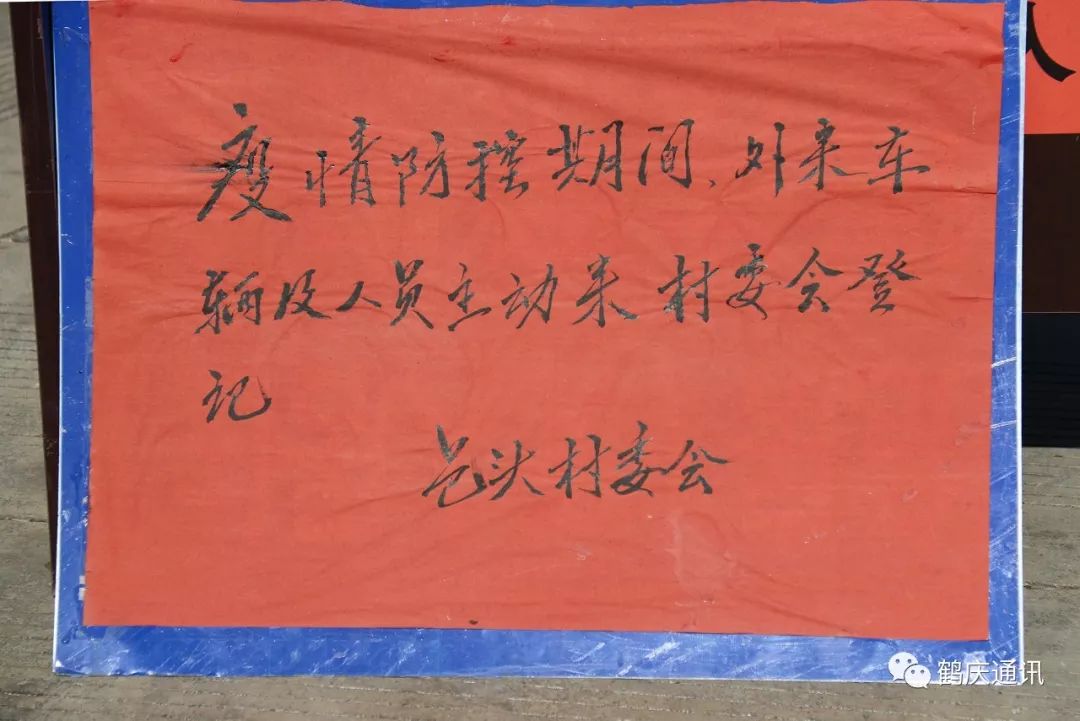 疫情防控期间、外来车
辆及人员主动来村委会登
记
邑头村委会
鹤庆通讯